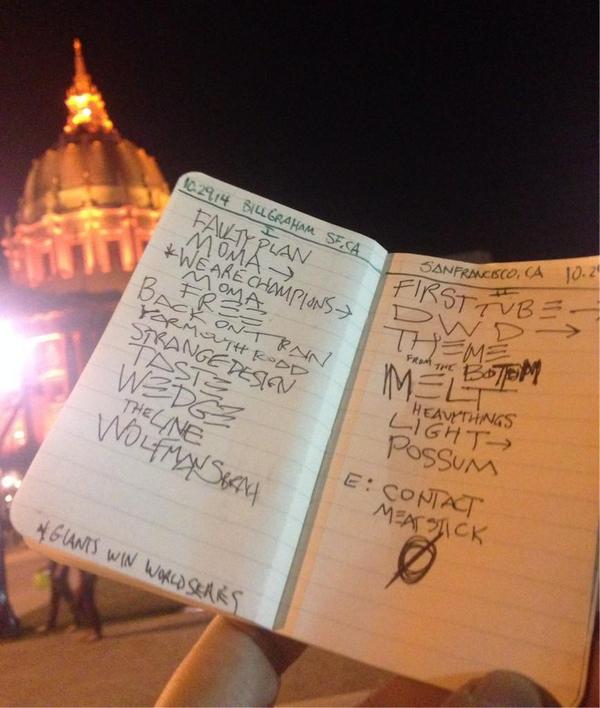 10.29.14 BILL GRAHAM SF, CA
I
FAULTY PLAN
MOMA →
*WE ARE CHAMPIONS →
MOMA
FREE
BACK ON T RAIN
YARMOUTH ROAD
STRANGE DESIGN
TASTE
WEDGE
THE LINE
WOLFMANS BRAH
* GIANTS WIN WORLD SERIES
SAN FRANCISCO, CA 10.2
II
FIRST TUBE →
DWD →
THEME
FROM THE BOTTOM
MELT
HEAVY THINGS
LIGHT →
POSSUM
E: CONTACT
MEATSTICK